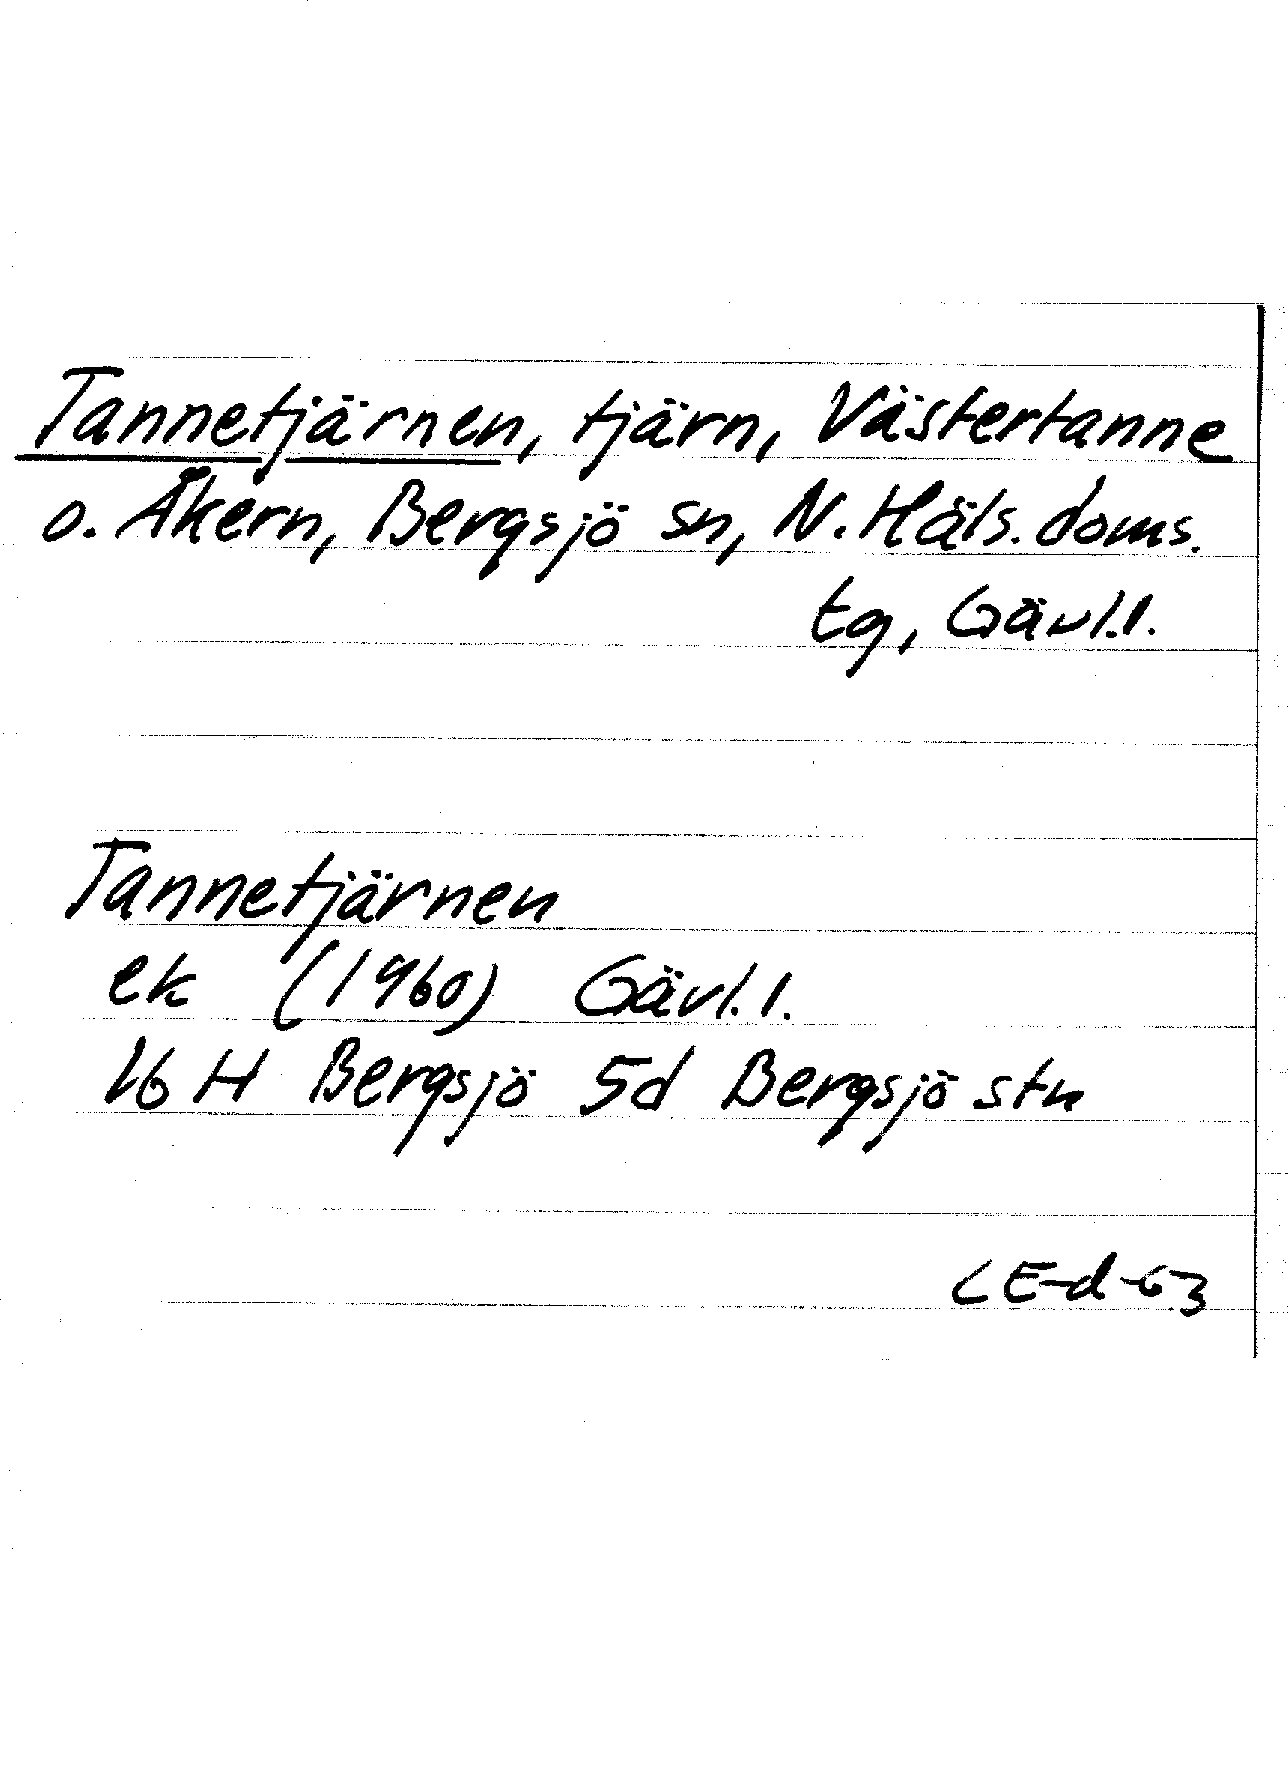 Tannetjärnen, tjärn, Västertanne
o. Åkern, Bergsjö sn, N. Häls. doms.
tg, Gävl.l.
Tannetjärnen
ek (1960) Gävl.l.
16 H Bergsjö 5d Bergsjö stn
CE-d-63